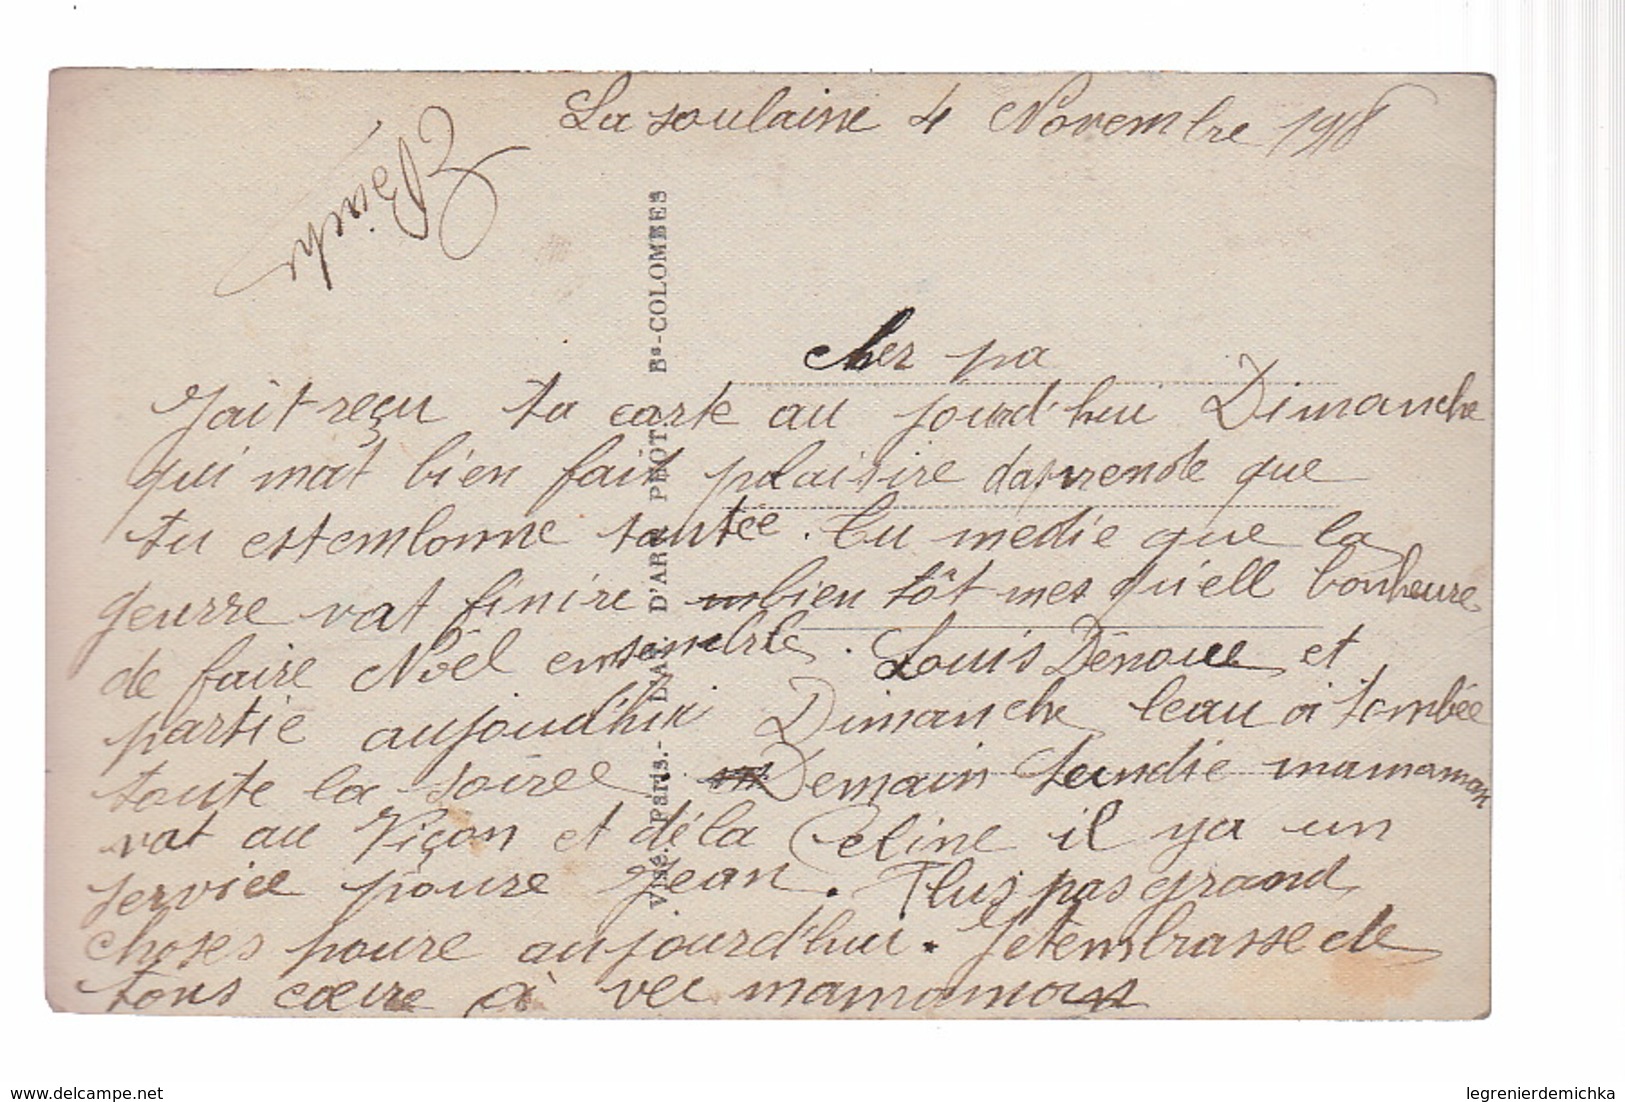 La soulaine 4 Novembre 1918
cher pa
Jait reçu ta carte au jourd'hui Dimanche
qui mat bien fait plaisire daprende que
tu estembonne santée. Tu medie que la
geurre vat finire bien tôt mes qu'ell bonheure
de faire Nöel ensemble. Louis Dénoue et
partie aujoud'hui Dimanche leau à tombée
toute la soiree Demain Lundie mamaman
vat au Piçon et déla Celine il ya un
service poure Jean. Plus pas grand
choses poure aujourd'hui. Jetembrasse de
tous cœure à vec mamaman
Visé, Paris. - L'AS. D'ART PHOT. Bs-COLOMBES
delcampe.net
legrenierdemichka